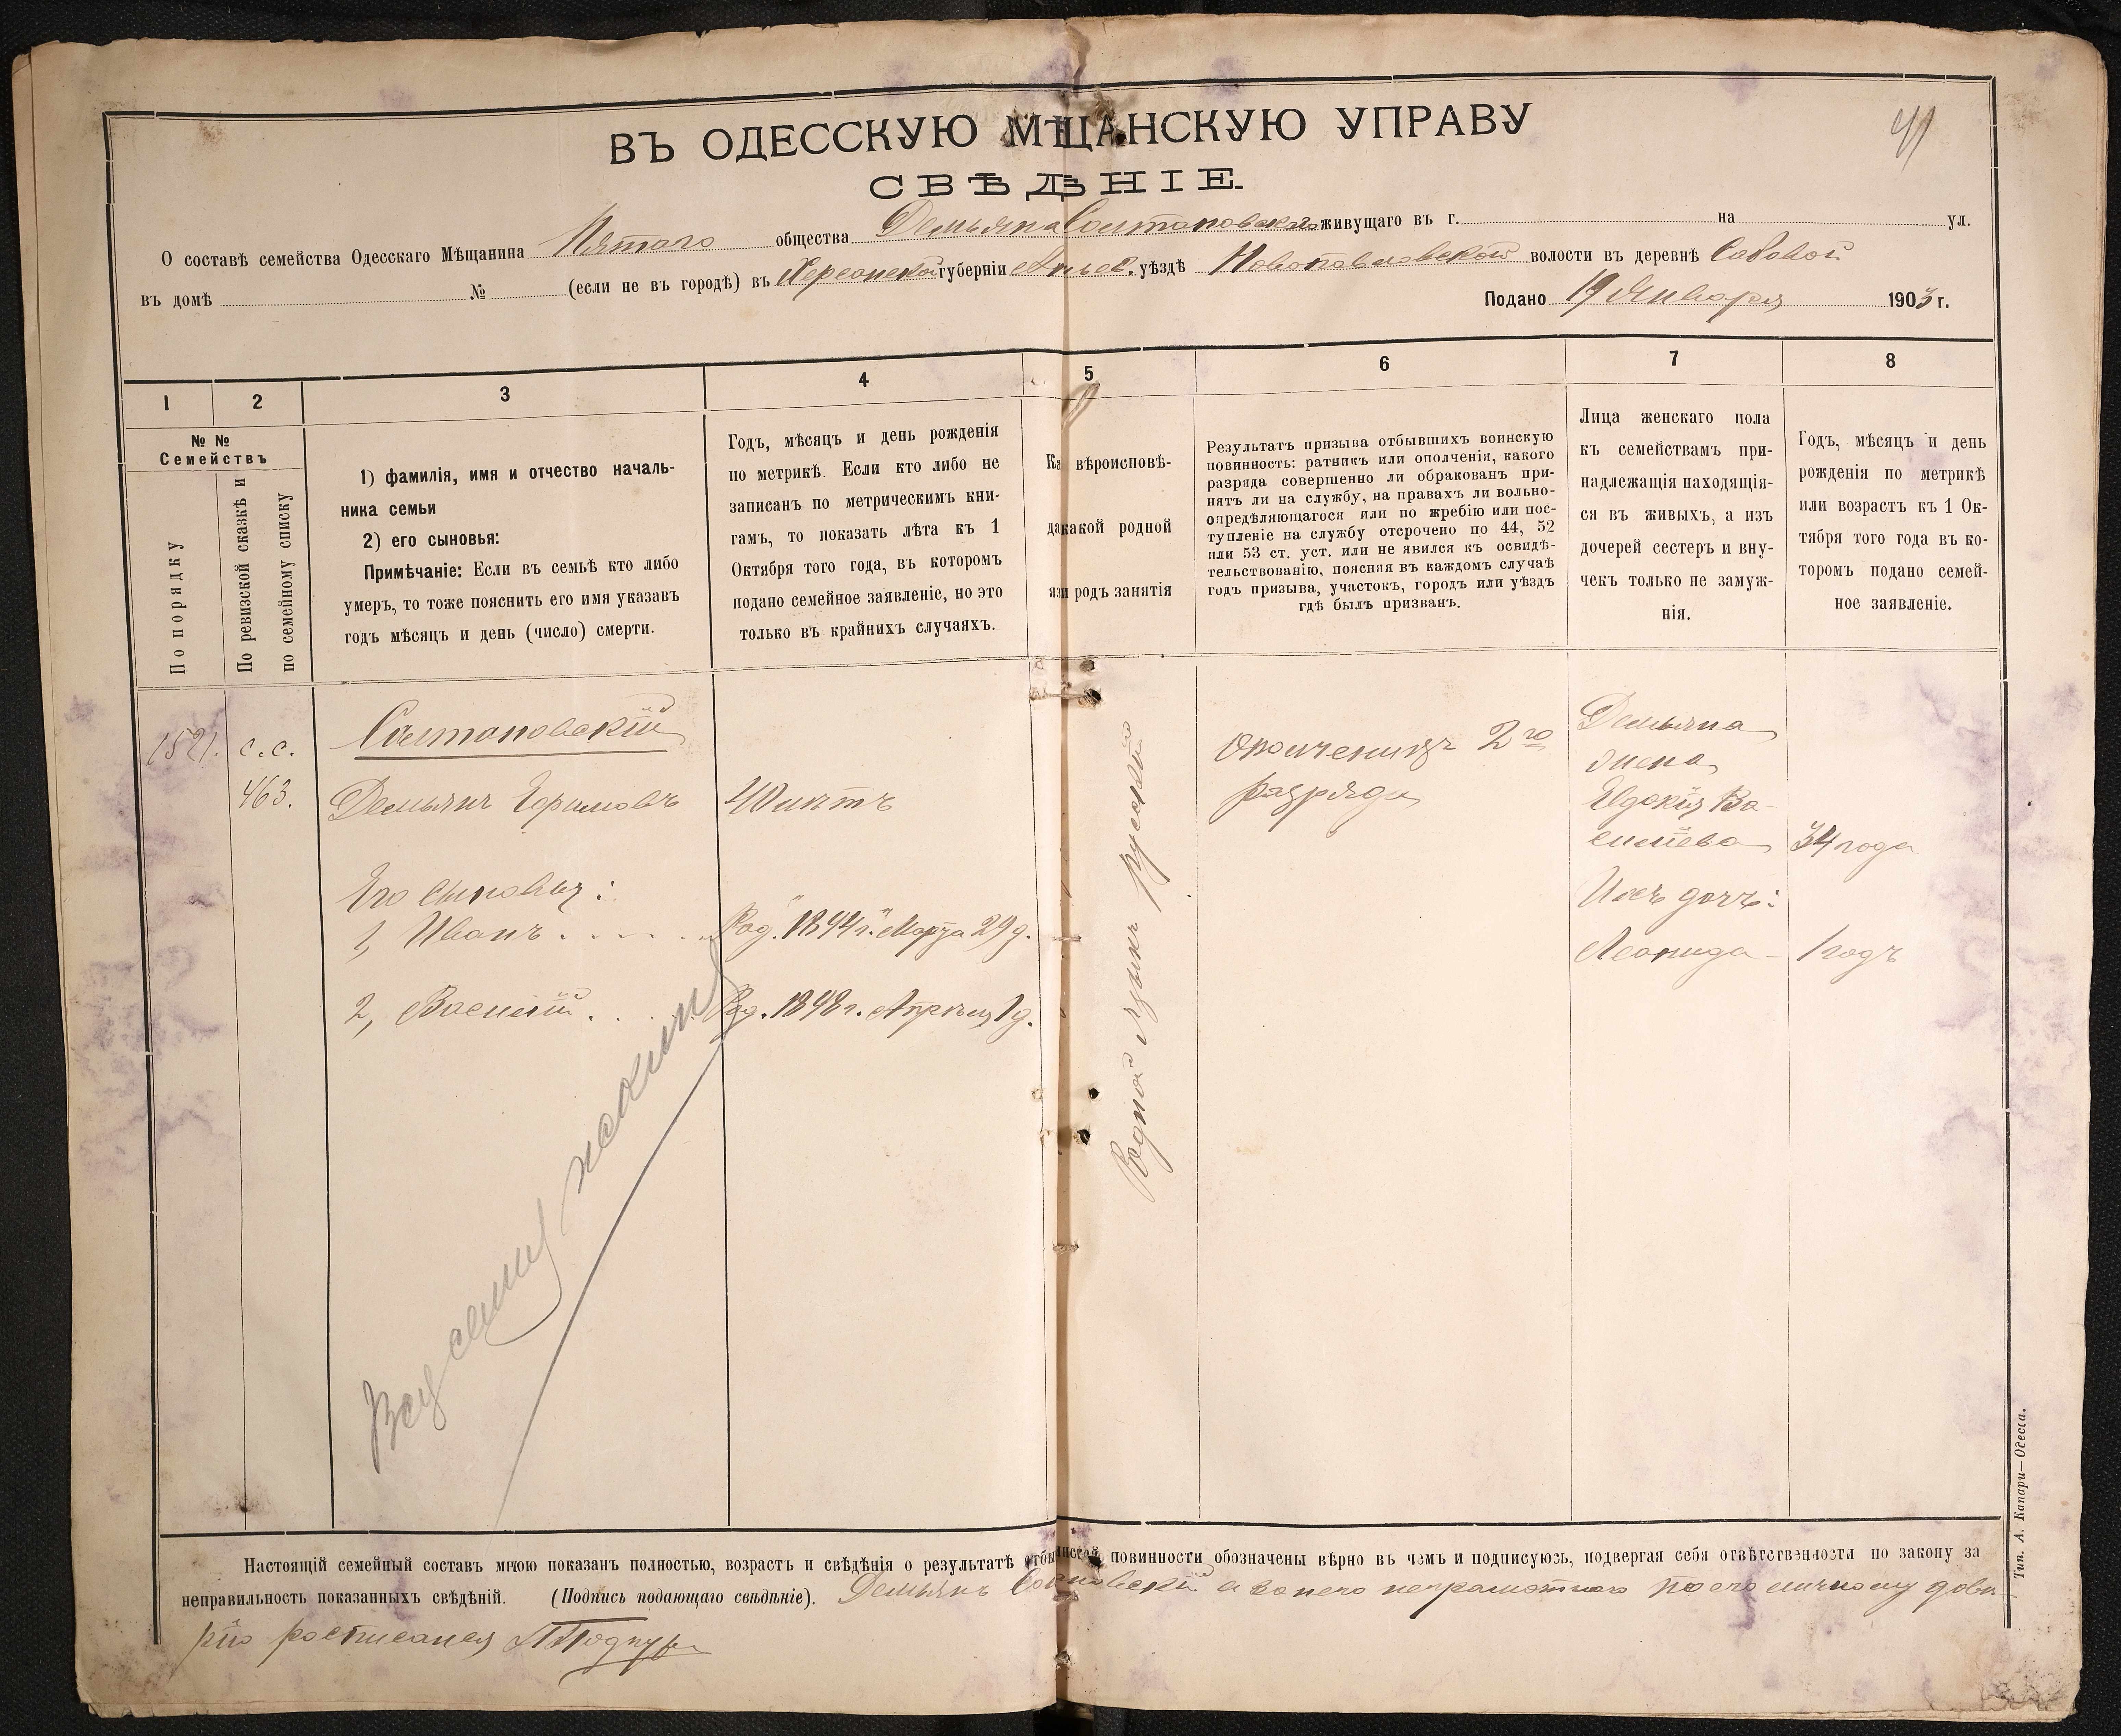 ВЪ ОДЕССКУЮ МѢЩАНСКУЮ УПРАВУ
41
СВѢДѢНІЕ.
О составѣ семейства Одесскаго Мѣщанина Пятаго общества Демьяна Солтановскаго живущаго въ г. на ул.
въ домѣ № (если не въ городѣ) въ Херсонской губерніи Ананьев. уѣздѣ Новопавловской волости въ деревнѣ Сововой
Подано 19 Января 1903 г.
1 2 3 4 5 6 7 8
№ №
Семействъ
По порядку
По ревизской сказкѣ и
по семейному списку
1) фамилія, имя и отчество началь-
ника семьи
2) его сыновья:
Примѣчаніе: Если въ семьѣ кто либо
умеръ, то тоже пояснить его имя указавъ
годъ мѣсяцъ и день (число) смерти.
Годъ, мѣсяцъ и день рожденія
по метрикѣ. Если кто либо не
записанъ по метрическимъ кни-
гамъ, то показать лѣта къ 1
Октября того года, въ которомъ
подано семейное заявленіе, но это
только въ крайнихъ случаяхъ.
Ка вѣроисповѣ-
да какой родной
язи родъ занятія
Результатъ призыва отбывшихъ воинскую
повинность: ратникъ или ополченія, какого
разряда совершенно ли обракованъ при-
нятъ ли на службу, на правахъ ли вольно-
опредѣляющагося или по жребію или пос-
тупленіе на службу отсрочено по 44, 52
или 53 ст. уст. или не явился къ освидѣ-
тельствованію, поясняя въ каждомъ случаѣ
годъ призыва, участокъ, городъ или уѣздъ
гдѣ былъ призванъ.
Лица женскаго пола
къ семействамъ при-
надлежащія находящія-
ся въ живыхъ, а изъ
дочерей сестеръ и вну-
чекъ только не замуж-
нія.
Годъ, мѣсяцъ и день
рожденія по метрикѣ
или возрастъ къ 1 Ок-
тября того года въ ко-
торомъ подано семей-
ное заявленіе.
1521. с.с.
463.
Солтановскій
Демьянъ Ефимовъ
40 лѣтъ
Его сыновья:
1, Иванъ . . . . . Род. 1894 г. Марта 29 д.
2, Василій . . . Род. 1898 г. Апрѣля 1 д.
Всѣ семи
Родной языкъ русскій
Ополченецъ 2го
разряда
Демьяна
жена
Евдокія Ва-
сильева 34 года
Ихъ дочь:
Леонида - 1 годъ
Настоящій семейный составъ мною показанъ полностью, возрастъ и свѣдѣнія о результатѣ отбы инской повинности обозначены вѣрно въ чемъ и подписуюсь, подвергая себя отвѣтственности по закону за
неправильность показанныхъ свѣдѣній. (Подпись подающаго свѣдѣніе). Демьянъ Солтановскій а за него неграмотнаго по его личному довѣ-
рію росписался
Тип. А. Капари—Одесса.